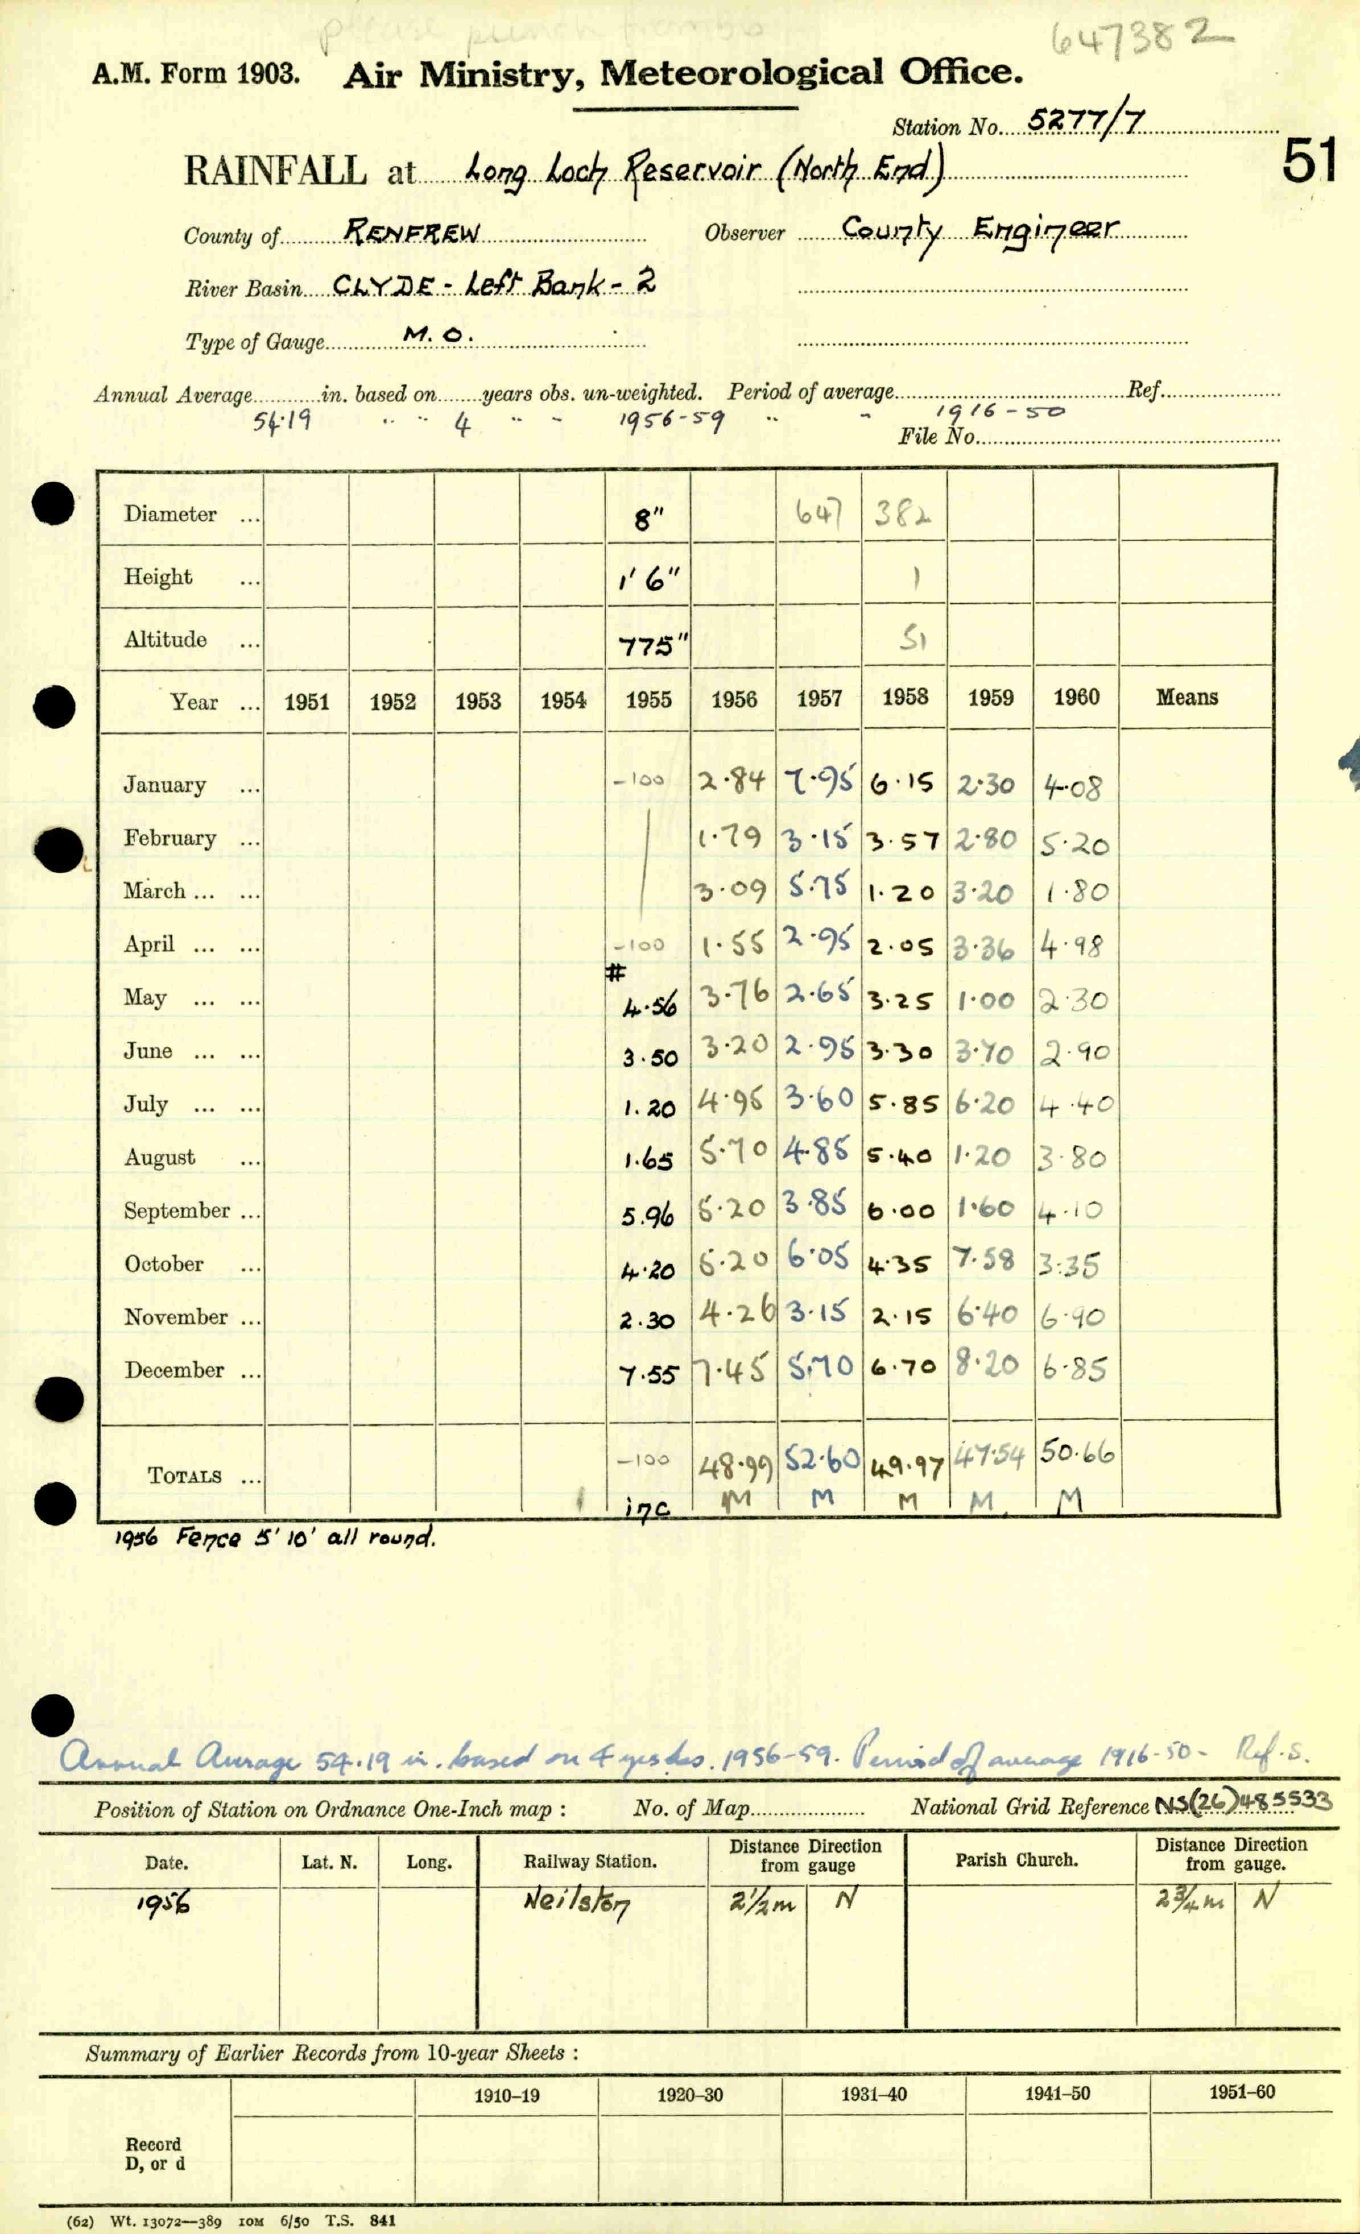 please punch from
647382
A.M. Form 1903. Air Ministry, Meteorological Office.
Station No. 5277/7
51
RAINFALL at Long Loch Reservoir (North End)
County of RENFREW Observer County Engineer
River Basin CLYDE - Left Bank - 2
Type of Gauge M.O.
Annual Average in. based on years obs. un-weighted. Period of average Ref.
54.19 " " 4 " " 1956-59 " " 1916-50
File No.
Diameter ... 8" 647 382
Height ... 1' 6" 1
Altitude ... 775" 51
Year ... 1951 1952 1953 1954 1955 1956 1957 1958 1959 1960 Means
January ... -100 2.84 7.95 6.15 2.30 4.08
February ... 1.79 3.15 3.57 2.80 5.20
March ... ... 3.09 5.75 1.20 3.20 1.80
April ... ... -100 1.55 2.95 2.05 3.36 4.98
#
May ... ... 4.56 3.76 2.65 3.25 1.00 2.30
June ... ... 3.50 3.20 2.95 3.30 3.70 2.90
July ... ... 1.20 4.95 3.60 5.85 6.20 4.40
August ... 1.65 5.70 4.85 5.40 1.20 3.80
September ... 5.96 5.20 3.85 6.00 1.60 4.10
October ... 4.20 5.20 6.05 4.35 7.58 3.35
November ... 2.30 4.26 3.15 2.15 6.40 6.90
December ... 7.55 7.45 5.70 6.70 8.20 6.85
TOTALS ... -100 48.99 52.60 49.97 47.54 50.66
inc M M M M M
1956 Fence 5' 10' all round.
Annual Average 54.19 in. based on 4 yrs obs. 1956-59. Period of average 1916-50- Ref. S.
Position of Station on Ordnance One-Inch map : No. of Map National Grid Reference NS(26)485533
Date. Lat. N. Long. Railway Station. Distance Direction from gauge Parish Church. Distance Direction from gauge.
1956 Neilston 2½m N 2¾m N
Summary of Earlier Records from 10-year Sheets :
1910–19 1920–30 1931–40 1941–50 1951–60
Record
D, or d
(62) Wt. 13072—389 10M 6/50 T.S. 841